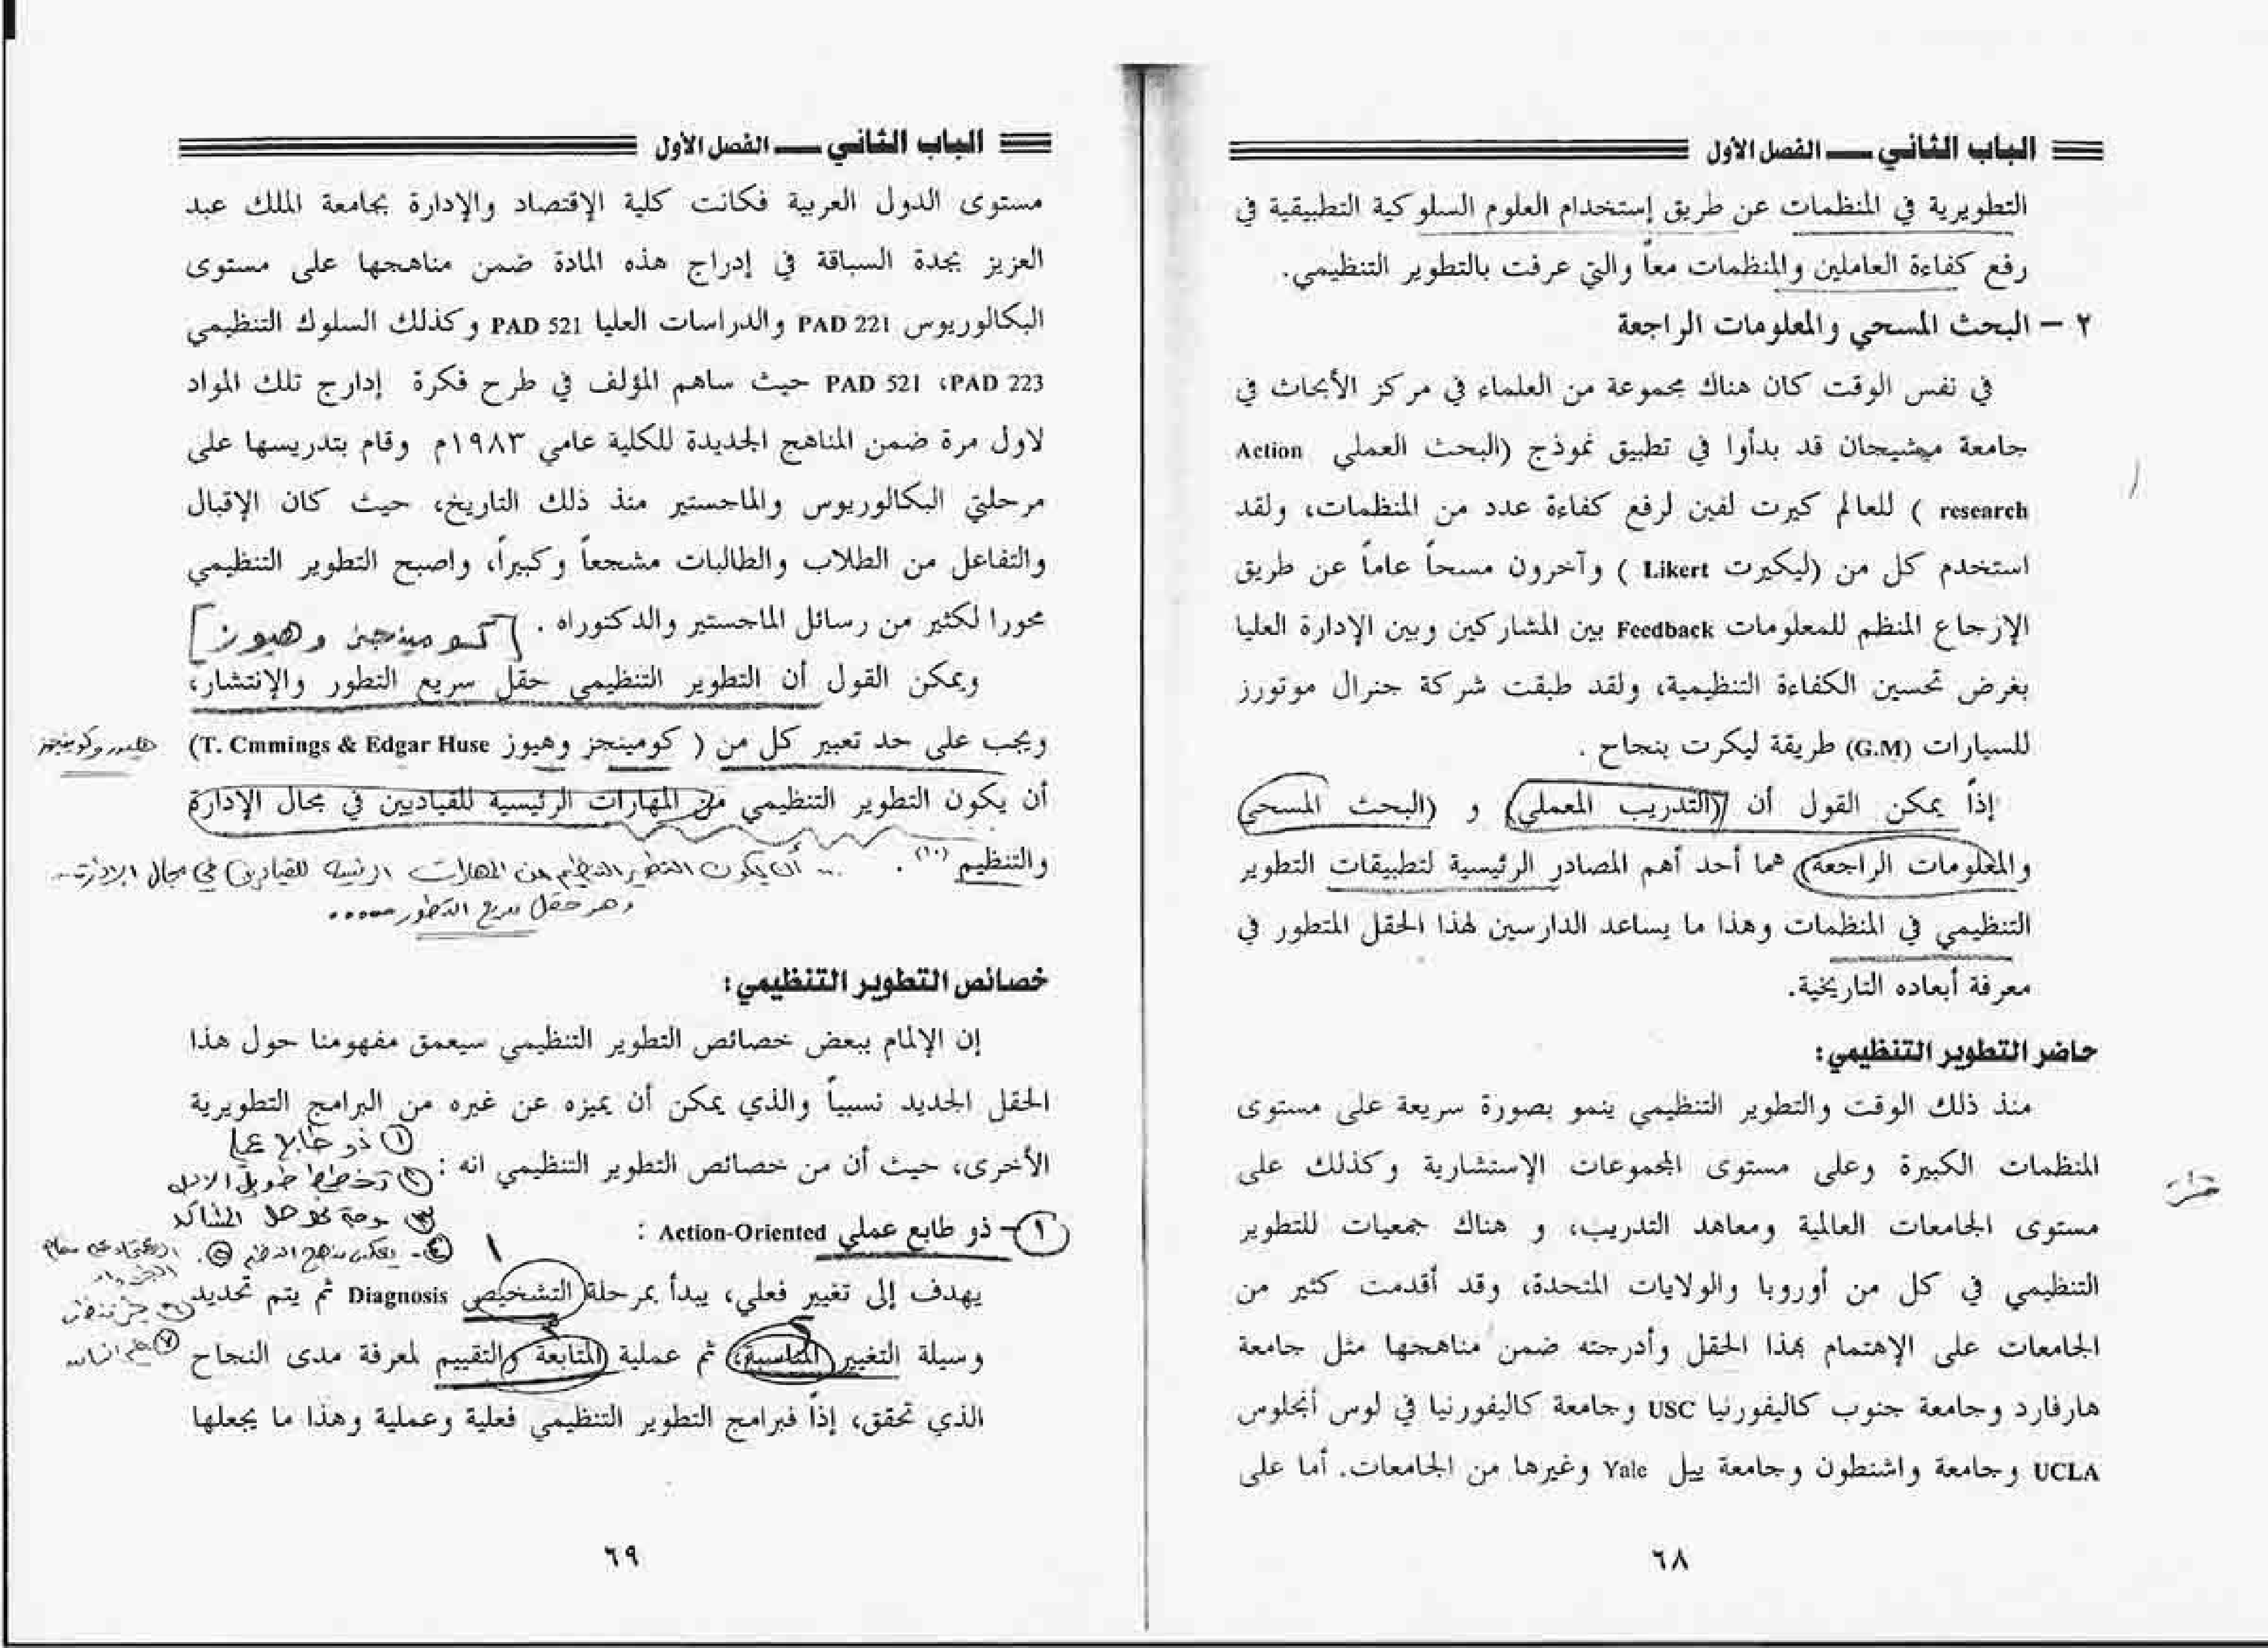 الباب الثاني ــ الفصل الأول
التطويرية في المنظمات عن طريق إستخدام العلوم السلوكية التطبيقية في
رفع كفاءة العاملين والمنظمات معاً والتي عرفت بالتطوير التنظيمي.
٢ – البحث المسحي والمعلومات الراجعة
في نفس الوقت كان هناك مجموعة من العلماء في مركز الأبحاث في
جامعة ميشيجان قد بدأوا في تطبيق نموذج (البحث العملي Action
research ) للعالم كيرت لفين لرفع كفاءة عدد من المنظمات، ولقد
استخدم كل من (ليكيرت Likert ) وآخرون مسحاً عاماً عن طريق
الإرجاع المنظم للمعلومات Feedback بين المشاركين وبين الإدارة العليا
بغرض تحسين الكفاءة التنظيمية، ولقد طبقت شركة جنرال موتورز
للسيارات (G.M) طريقة ليكرت بنجاح .
إذاً يمكن القول أن (التدريب المعملي) و (البحث المسحي
والمعلومات الراجعة) هما أحد أهم المصادر الرئيسية لتطبيقات التطوير
التنظيمي في المنظمات وهذا ما يساعد الدارسين لهذا الحقل المتطور في
معرفة أبعاده التاريخية.
حاضر التطوير التنظيمي:
منذ ذلك الوقت والتطوير التنظيمي ينمو بصورة سريعة على مستوى
المنظمات الكبيرة وعلى مستوى المجموعات الإستشارية وكذلك على
مستوى الجامعات العالمية ومعاهد التدريب، و هناك جمعيات للتطوير
التنظيمي في كل من أوروبا والولايات المتحدة، وقد أقدمت كثير من
الجامعات على الإهتمام بهذا الحقل وأدرجته ضمن مناهجها مثل جامعة
هارفارد وجامعة جنوب كاليفورنيا USC وجامعة كاليفورنيا في لوس أنجلوس
UCLA وجامعة واشنطون وجامعة ييل Yale وغيرها من الجامعات. أما على
٦٨
الباب الثاني ــ الفصل الأول
مستوى الدول العربية فكانت كلية الإقتصاد والإدارة بجامعة الملك عبد
العزيز بجدة السباقة في إدراج هذه المادة ضمن مناهجها على مستوى
البكالوريوس PAD 221 والدراسات العليا PAD 521 وكذلك السلوك التنظيمي
PAD 521 ،PAD 223 حيث ساهم المؤلف في طرح فكرة إدارج تلك المواد
لاول مرة ضمن المناهج الجديدة للكلية عامي ١٩٨٣م وقام بتدريسها على
مرحلتي البكالوريوس والماجستير منذ ذلك التاريخ، حيث كان الإقبال
والتفاعل من الطلاب والطالبات مشجعاً وكبيراً، واصبح التطوير التنظيمي
محورا لكثير من رسائل الماجستير والدكتوراه . [كومينجز وهيوز]
ويمكن القول أن التطوير التنظيمي حقل سريع التطور والإنتشار،
ويجب على حد تعبير كل من ( كومينجز وهيوز T. Cmmings & Edgar Huse)
أن يكون التطوير التنظيمي من المهارات الرئيسية للقياديين في مجال الإدارة
والتنظيم (١٠) . ... أن يكون التطوير التنظيم من المهارات الرئيسية للقيادين في مجال الإدارة ..
وهو حقل سريع التطور .....
خصائص التطوير التنظيمي:
إن الإلمام ببعض خصائص التطوير التنظيمي سيعمق مفهومنا حول هذا
الحقل الجديد نسبياً والذي يمكن أن يميزه عن غيره من البرامج التطويرية
① ذو طابع عملي
الأخرى، حيث أن من خصائص التطوير التنظيمي انه :
② تخطيط طويل الاجل
③ موجة نحو حل المشاكل
١– ذو طابع عملي Action-Oriented :
يهدف إلى تغيير فعلي، يبدأ بمرحلة التشخيص Diagnosis ثم يتم تحديد
وسيلة التغيير المناسبة، ثم عملية المتابعة والتقييم لمعرفة مدى النجاح
الذي تحقق، إذاً فبرامج التطوير التنظيمي فعلية وعملية وهذا ما يجعلها
٦٩